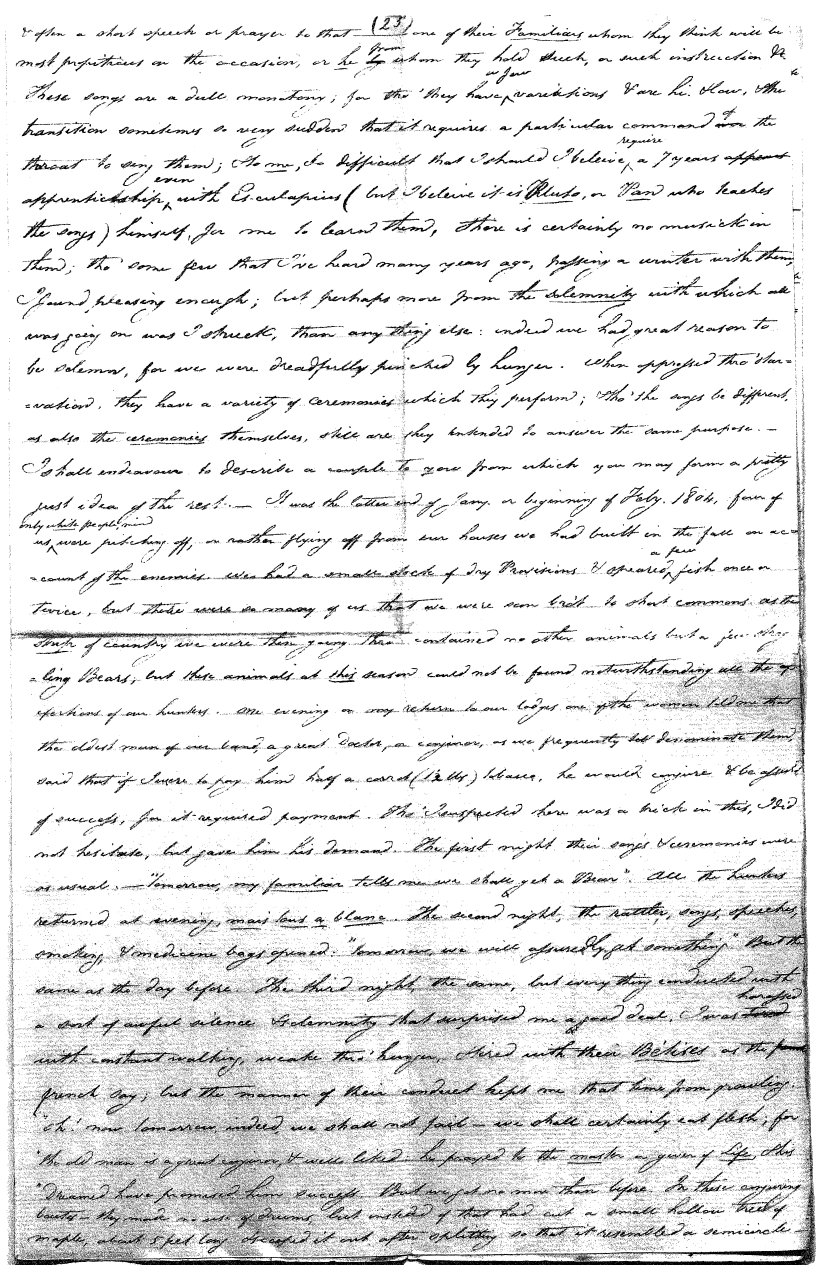 (23)
& often a short speech or prayer to that ___ one of their Familiars whom they think will be
most propitious on the occasion, or he from whom they hold such, or such instruction &c
These songs are a dull monotony; for tho' they have a few variations & are hi. Haw, & the
transition sometimes so very sudden that it requires a particular command of the
throat to sing them; & to me, so difficult that I should I beleive require a 7 years
apprenticeship, even with Esculapius (but I beleive it is Pluto, or Pan who teaches
the songs) himself, for me to learn them, there is certainly no musick in
them; tho' some few that I've heard many years ago, passing a winter with them,
I found pleasing enough; but perhaps more from the solemnity with which all
was going on was I struck, than any thing else: indeed we had great reason to
be solemn, for we were dreadfully pinched by hunger. When oppressed thro' star=
=vation, they have a variety of ceremonies which they perform; tho' the songs be different,
as also the ceremonies themselves, still are they intended to answer the same purpose. —
I shall endeavour to describe a couple to you from which you may form a pretty
just idea of the rest. — It was the latter end of Jany. or beginning of Feby. 1804, four of
us only white people, mind were pitching off, or rather flying off from our houses we had built in the fall on ac=
=count of the enemies. we had a small stock of dry Provisions & speared a few fish once or
twice, but there were so many of us that we were soon bro't to short commons. as the
strip of country we were then going thro' contained no other animals but a few stra
=ling Bears; but these animals at this season could not be found notwithstanding all the
exertions of our hunters. one evening on my return to our lodges one of the women told me that
the eldest man of our band, a great Doctor, or conjuror, as we frequently denominate them,
said that if I were to pay him half a carrot (1½ lbs) tobacco, he would conjure & be assured
of success, for it required payment. Tho' I suspected there was a trick in this, I did
not hesitate, but gave him his demand. The first night their songs & ceremonies were
as usual. — "Tomorrow, my familiar tells me we shall get a Bear". All the hunters
returned at evening, mais tous a blanc. The second night, the rattler, songs, speeches,
smoking, & medicine bags opened: "tomorrow, we will assuredly get something" But the
same as the day before. The third night, the same, but every thing conducted with
a sort of awful silence & solemnity that surprised me a good deal, I was harassed
with constant walking, weake thro' hunger, tired with their Bétises as the
french say; but the manner of their conduct kept me that time from growling.
"oh! now tomorrow, indeed, we shall not fail — we shall certainly eat flesh; for
"the old man is a great conjuror, & well liked — he prayed to the master or giver of Life, & his
"Dreamed have promised him success. But we got no more than before. In these conjuring
bouts — they made no use of drums, but instead of that had cut a small hollow tree of
maple, about 5 feet long & scooped it out after splitting so that it resembled a semicircle